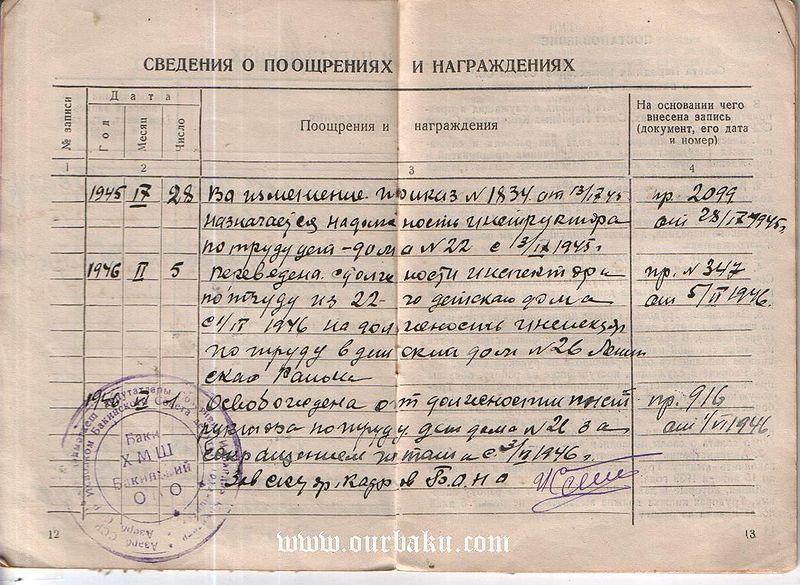 СВЕДЕНИЯ О ПООЩРЕНИЯХ И НАГРАЖДЕНИЯХ
№ записи
Дата
Год
Месяц
Число
Поощрения и награждения
На основании чего внесена запись (документ, его дата и номер)
1 2 3 4
1945 IX 28 В изменение приказ N 1834 от 13/IX 45 пр. 2099
назначается на должность инструктора от 28/IX 1945г
по труду дет-дома N22 с 3/IX 1945г.
1946 II 5 переведена с должности инспектора пр. N 347
по труду из 22-го детского дома от 5/II 1946.
с 1/II 1946 на должность инспектора
по труду в детский дом N 26 Ленин
ского района
1946 1 Освобождена от должности инст пр. 916
руктора по труду дет дома N 26 за от 1/VI 1946
сокращением штата с 3/VI 1946г.
Зав. сектор. кадров БОНО
Баки
ХМШ
Бакинский
ОНО
12 13
www.ourbaku.com